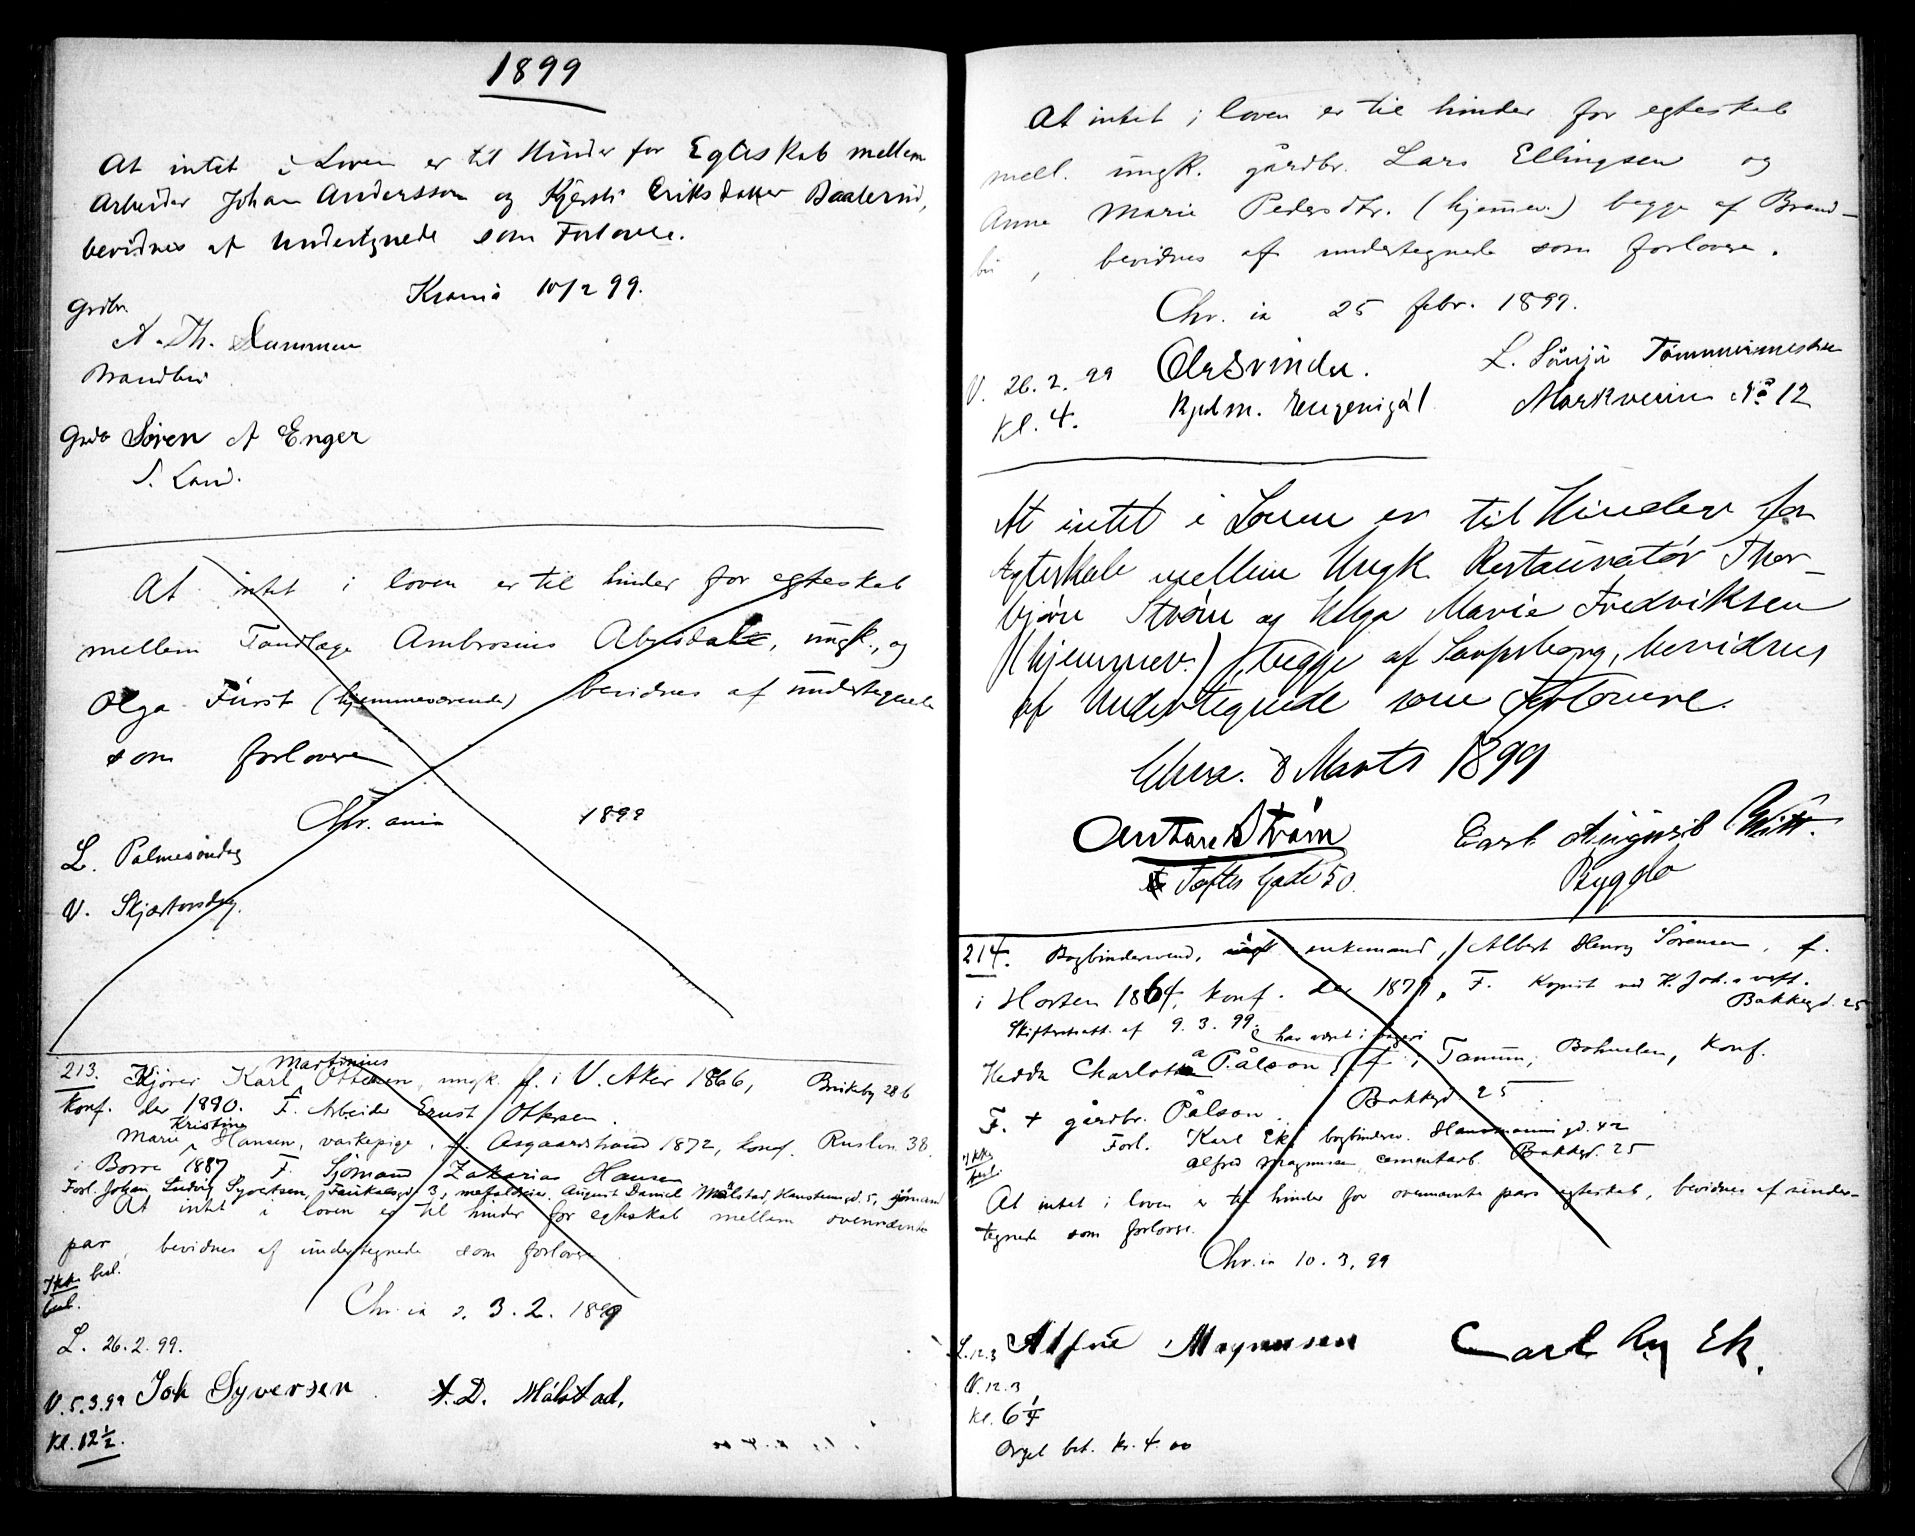 1899
At intet i Loven er til Hinder for Egteskab mellem
Arbeider Johan Andersson og Kjersti Eriksdatter Baalerud,
bevidnes af undertegnede som Forlovere.
Krania 10/2 99.
Grdbr
A. Th. Lammen
Brandbu
Grdb Søren A Enger
S. Land.
At intet i loven er til hinder for egteskab
mellem Tandlæge Ambrosius, ungk., og
Olga Fürst (hjemmeværende) bevidnes af undertegnede
som forlovere
Chr. ania 1899
L. Palmesøndag
V. Skjærtorsdag.
213. Kjører Karl Martinius Ottesen, ungk. f. i V. Aker 1866, Brikeby 286
konf. der 1890. F. Arbeider Ernst Ottesen.
Marie Kristine Hansen, vaskepige, f. Aasgaardstrand 1872, konf. Rusløn. 38.
i Borre 1887 F. Sjømand Zakarias Hansen
Forl. Johan Ludvig Syvertsen, 3, August Daniel Målstad, 5, sjømand
At intet i loven er til hinder for egteskab mellem ovennævnte
par, bevidnes af undertegnede som forlovere
Ikke besl.
besl.
Chr. ia d. 3. 2. 1899
L. 26. 2. 99.
V. 5. 3. 99 Joh Syversen A. D. Målstad.
Kl. 12 1/2.
At intet i loven er til hinder for egteskab
mell. ungk. gårdbr. Lars Ellingsen og
Anne Marie Pedersdtr. (hjemmev.) begge af Brand-
bu, bevidnes af undertegnede som forlovere.
Chr. ia 25 febr. 1899.
V. 26. 2. 99 Ole Svinda. L. Tømmermester
Kl. 4. Kjøbm. Markveien No 12
At intet i Loven er til Hinder for
Ægteskab mellem Ungk. Restauratør Thor-
bjørn Strøm og Helga Marie Fredriksen
(hjemmev.), begge af Sarpsborg, bevidnes
af Undertegnede som Forlovere.
Chra. 8 Marts 1899
Anton Strøm Carl August Witt.
Toftes Gade 50. Bygdø
214. Bogbindersvend, enkemand, Albert Henry Sørensen, f.
i Horten 1864, konf. der 1879, F. Kopist ved K. Joh.s verft.
Bakkegd. 25
Skifteratt. af 9. 3. 99.
Hedda Charlotta Pålson, f. i Tanum, Bohuslen, konf.
F. + gårdbr. Pålson. Bakkegd 25
Forl. Karl Ek, bogbindersv. Hausmanns gd. 42
Alfred Magnusen, cementarb. Bakkegd. 25
Ikke
besl.
At intet i loven er til hinder for ovennævnte pars egteskab, bevidnes af under-
tegnede som forlovere.
Chr. ia 10. 3. 99
L. 12. 3 Alfred Magnusen Carl Ek.
V. 12. 3
Kl. 6 1/4
Orgel bet. kr. 4.00